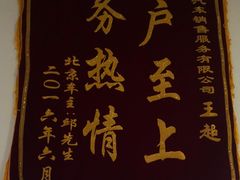 汽车销售服务有限公司 王超
户至上
务热情
北京车主：邱先生
二〇一六年六月